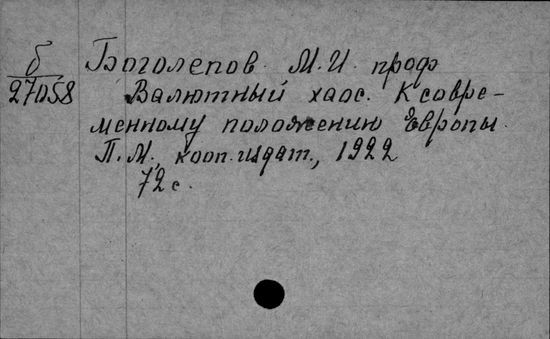 б
27058
Боголепов М.И. проф
Валютный хаос. К совре-
менному положению Европы.
П. М., кооп. издат., 1922
72 с.